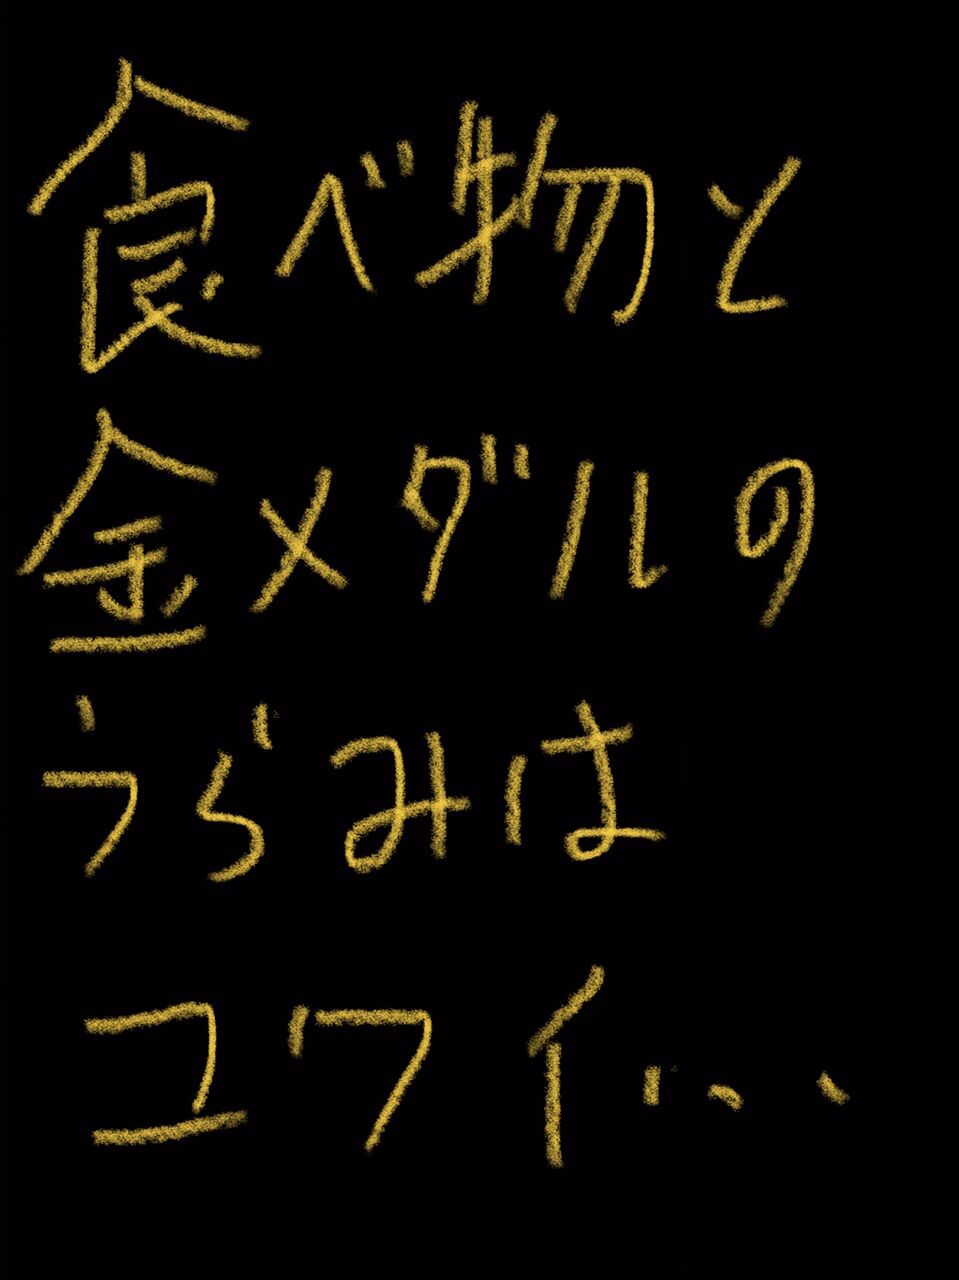 食べ物と
金メダルの
うらみは
コワイ...